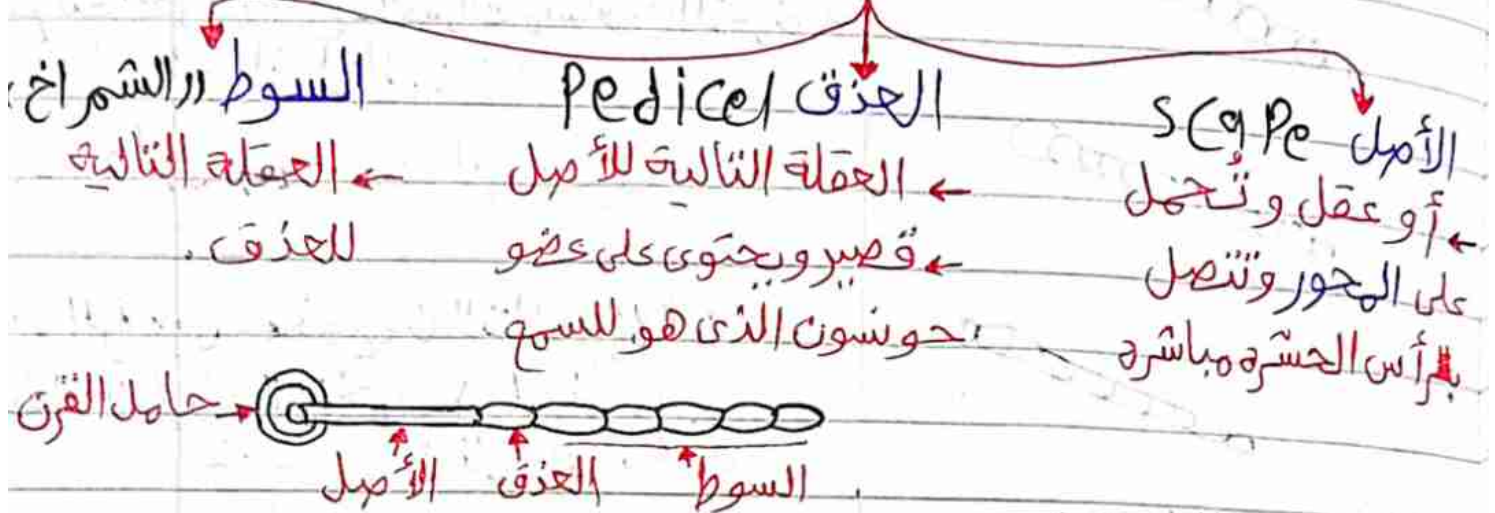 الأصل scape
← أو عقل وتُحمل
على المحور وتتصل
برأس الحشره مباشره
العذق Pedicel
← العقلة التالية للأصل
← قصير ويحتوى على عضو
جونسون الذى هو للسمع
السوط "الشمراخ
← العقلة التالية
للعذق.
حامل القرن
الأصل
العذق
السوط